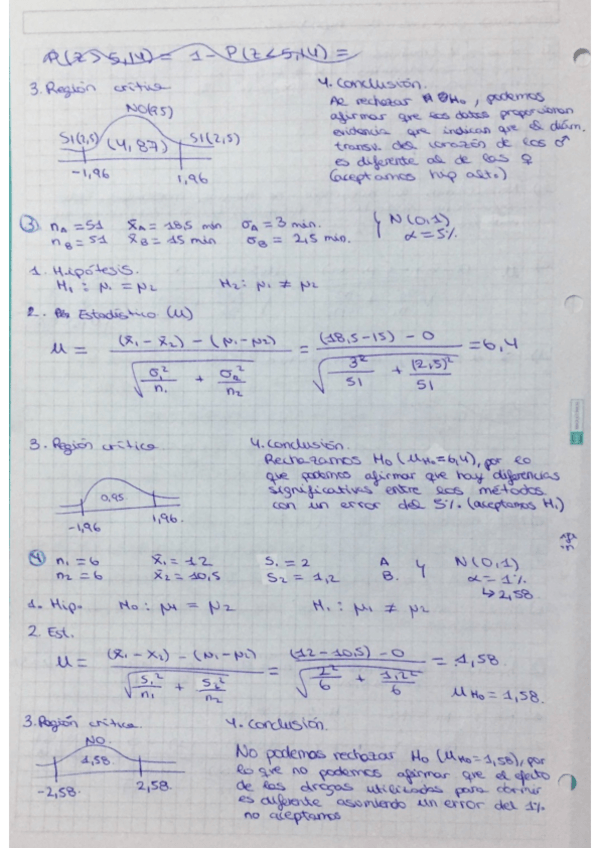 P(Z>5,14) = 1 - P(Z<5,14) =
3. Región crítica
NO(95)
SI(2,5) (4,87) SI(2,5)
-1,96 1,96
4. Conclusión.
Al rechazar H0, podemos
afirmar que los datos proporcionan
evidencia que indican que el diám.
transv. del corazón de los ♂
es diferente al de las ♀
(aceptamos hip alt.)
③ nA = 51 x̄A = 18,5 min σA = 3 min. N(0,1)
nB = 51 x̄B = 15 min σB = 2,5 min. α = 5%
1. Hipótesis.
H1 : μ1 = μ2 H2 : μ1 ≠ μ2
2. Estadístico (u)
u = (x̄1 - x̄2) - (μ1 - μ2) / √(σ1²/n1 + σ2²/n2) = (18,5-15) - 0 / √(3²/51 + (2,5)²/51) = 6,4
3. Región crítica
0,95
-1,96 1,96.
4. Conclusión.
Rechazamos H0 (uH0=6,4), por lo
que podemos afirmar que hay diferencias
significativas entre los métodos
con un error del 5%. (aceptamos H1)
④ n1 = 6 x̄1 = 12 S1 = 2 A N(0,1)
n2 = 6 x̄2 = 10,5 S2 = 1,2 B. α = 1%
↳ 2,58
1. Hip. H0 : μ1 = μ2 H1 : μ1 ≠ μ2
2 Est.
u = (x̄1 - x̄2) - (μ1 - μ2) / √(S1²/n1 + S2²/n2) = (12-10,5) - 0 / √(2²/6 + 1,2²/6) = 1,58.
uH0 = 1,58.
3. Región crítica.
NO.
1,58.
-2,58. 2,58.
4. Conclusión.
No podemos rechazar H0 (uH0=1,58), por
lo que no podemos afirmar que el efecto
de las drogas utilizadas para dormir
es diferente asumiendo un error del 1%
no aceptamos